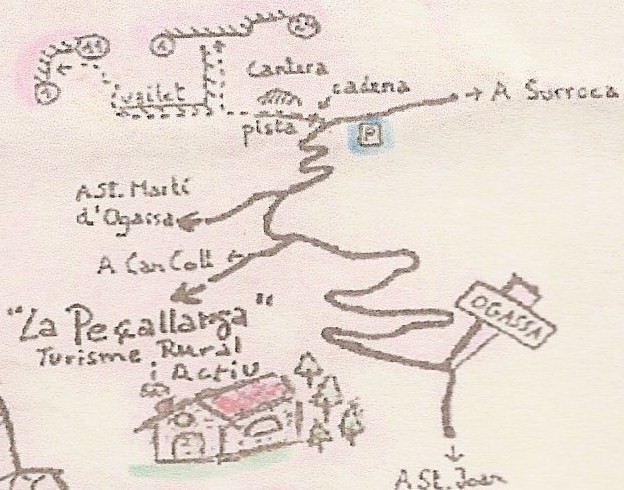 11
1
1
24
Cantera
cadena
vailet
→ A Surroca
pista
P
A St. Martí
d'Ogassa
A Can Coll
"La Peçallarga"
Turisme Rural
i Actiu
OGASSA
A St. Joan